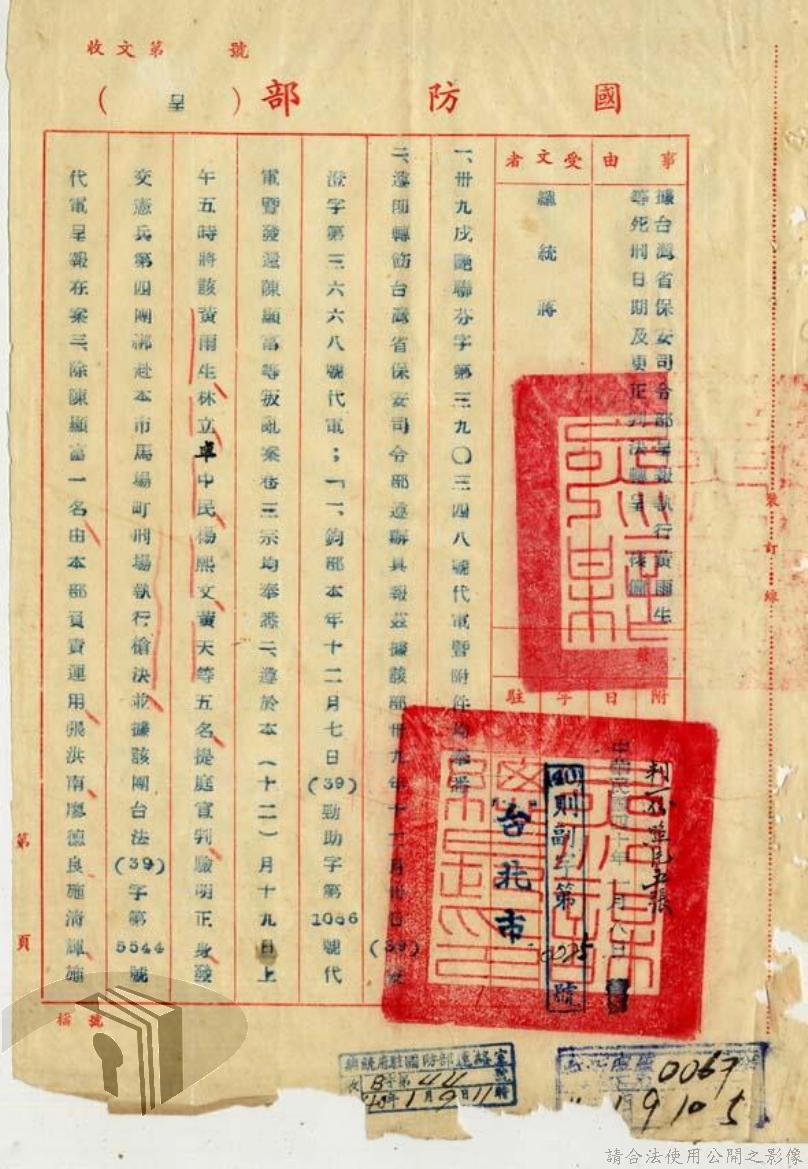 收文第 號
國防部(吉)
事由
據台灣省保安司令部呈報執行黃雨生
等死刑日期及更正判決轉呈
受文者
總統蔣
附
日
字
駐
判一份 張
中華民國四十年一月八日
(40)則副字第0085號
台北市
一、卅九戌 聯芬字第三九〇三四八號代電暨附件均奉悉
二、遵即轉飭台灣省保安司令部遵辦具報茲據該部卅九年十二月卅日(39)安
澄字第三六六八號代電:「一、鈞部本年十二月七日(39)勁助字第1086號代
電暨發還陳顯富等叛亂案卷三宗均奉悉二、遵於本(十二)月十九日上
午五時將該黃雨生林立卓中民楊熙文黃天等五名提庭宣判驗明正身發
交憲兵第四團綁赴本市馬場町刑場執行槍決並據該團台法(39)字第5544號
代電呈報在案三、除陳顯富一名由本部負責運用張洪南廖德良施清 施
裝訂線
第 頁
檔號
總統府駐國防部連絡室
收 字第44號
40年1月9日11時
0067
1 9 10 5
請合法使用公開之影像